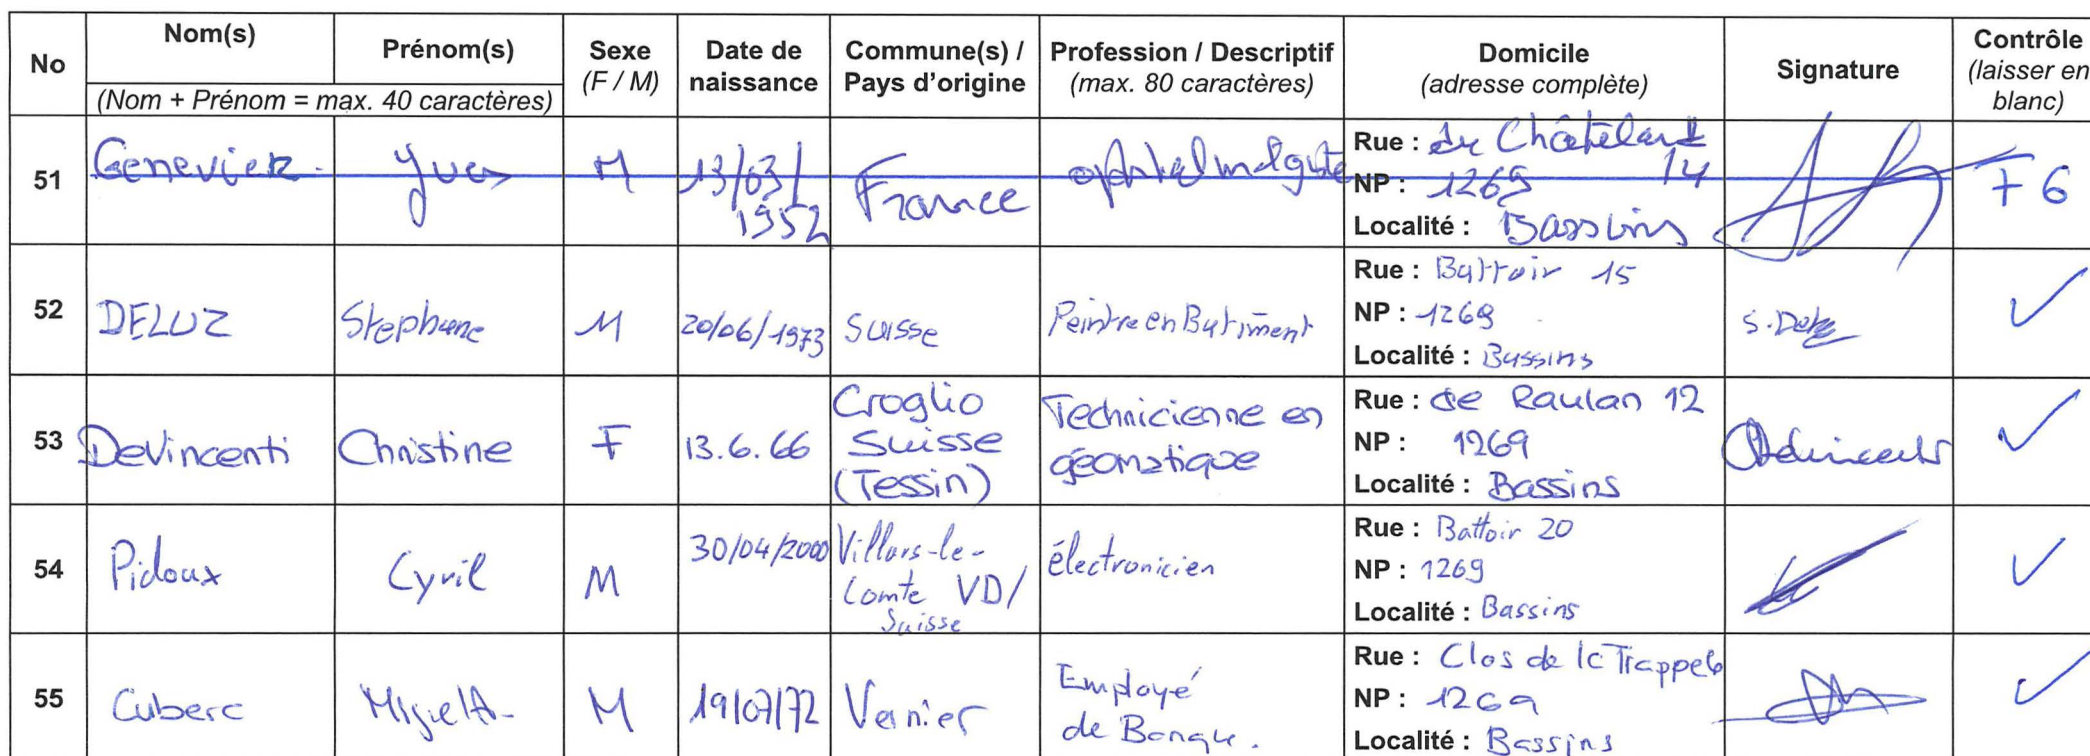 No Nom(s) Prénom(s) Sexe (F / M) Date de naissance Commune(s) / Pays d'origine Profession / Descriptif (max. 80 caractères) Domicile (adresse complète) Signature Contrôle (laisser en blanc)
(Nom + Prénom = max. 40 caractères)
51 Yves M 13/03/1952 France Rue : du Châtelard 14
NP : 1269
Localité : Bassins
52 DELUZ Stephane M 20/06/1973 Suisse Peintre en Batiment Rue : Battoir 15
NP : 1269
Localité : Bassins
53 Devincenti Christine F 13.6.66 Croglio Suisse (Tessin) Technicienne en géomatique Rue : de Raulan 12
NP : 1269
Localité : Bassins
54 Pidoux Cyril M 30/04/2000 Villars-le-Comte VD/ Suisse électronicien Rue : Battoir 20
NP : 1269
Localité : Bassins
55 M 19/07/72 Vernier Employé de Banque. Rue : Clos de la
NP : 1269
Localité : Bassins